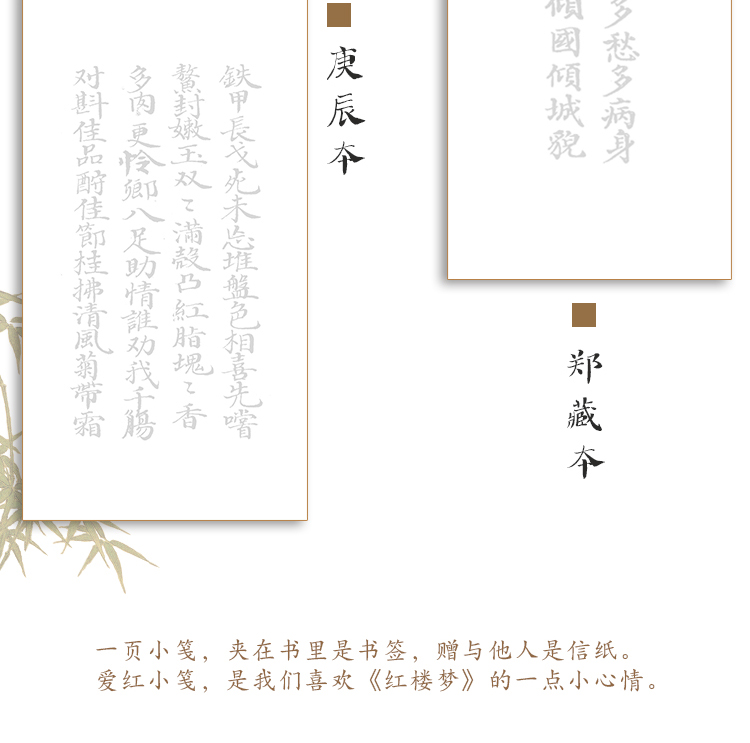 鉄甲長戈死未忘堆盤色相喜先嚐
螯封嫩玉双〻滿殻凸紅脂塊〻香
多肉更怜卿八足助情誰劝我千觴
对斟佳品酧佳節桂拂清風菊帶霜
庚辰本
多愁多病身
傾國傾城貌
郑藏本
一页小笺，夹在书里是书签，赠与他人是信纸。
爱红小笺，是我们喜欢《红楼梦》的一点小心情。